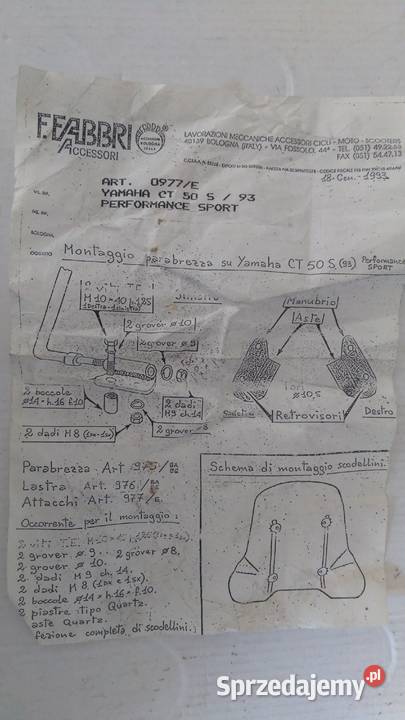 F. FABBRI
ACCESSORI
LAVORAZIONI MECCANICHE ACCESSORI CICLI - MOTO - SCOOTERS
40139 BOLOGNA (ITALY) - VIA FOSSOLO, 44ª - TEL. (051)
FAX (051) 54.47.13
18. Gen. 1993
ART. 0977/E
YAMAHA CT 50 S / 93
PERFORMANCE SPORT
BOLOGNA
OGGETTO
Montaggio parabrezza su Yamaha CT 50 S. (93) Performance
SPORT
2 grover ø 10
2 grover ø 9
2 boccole
ø14 - h.16 f.10
2 dadi M 8 (1DX - 1SX)
2 dadi
M9 ch 14
2 grover ø8
Manubrio
Aste
Fori
ø 10,5
Sinistro
Retrovisori
Destro
Parabrezza Art 975/
Lastra Art. 976/
Attacchi Art. 977/E.
Occorrente per il montaggio:
2 viti T.E.
2 grover ø 9.. 2 grover ø8,
2 grover ø 10.
2 dadi M9 ch. 14.
2 dadi M 8 (1DX e 1SX).
2 boccole ø14 - h.16 - f.10.
2 piastre tipo Quartz.
aste Quartz.
fezione completa di scodellini.
Schema di montaggio scodellini.
Sprzedajemy.pl